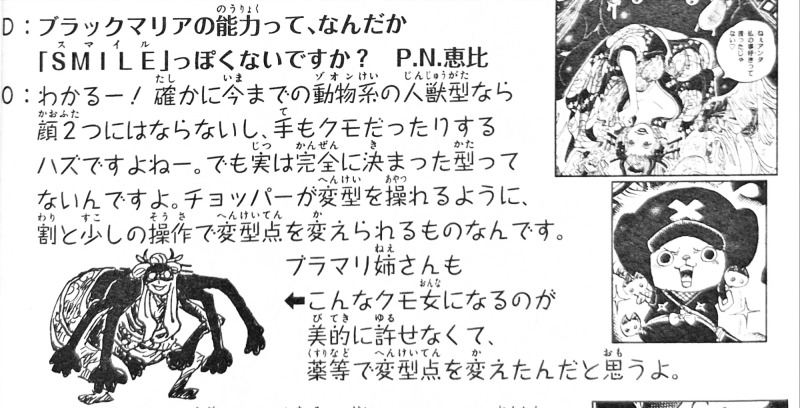 D：ブラックマリアの能力って、なんだか
「SMILE」っぽくないですか？　P.N.恵比
O：わかるー！ 確かに今までの動物系の人獣型なら
顔2つにはならないし、手もクモだったりする
ハズですよねー。でも実は完全に決まった型って
ないんですよ。チョッパーが変型を操れるように、
割と少しの操作で変型点を変えられるものなんです。
ブラマリ姉さんも
←こんなクモ女になるのが
美的に許せなくて、
薬等で変型点を変えたんだと思うよ。
ねェアンタ
私の事好きって
言ったじゃ
ない♡